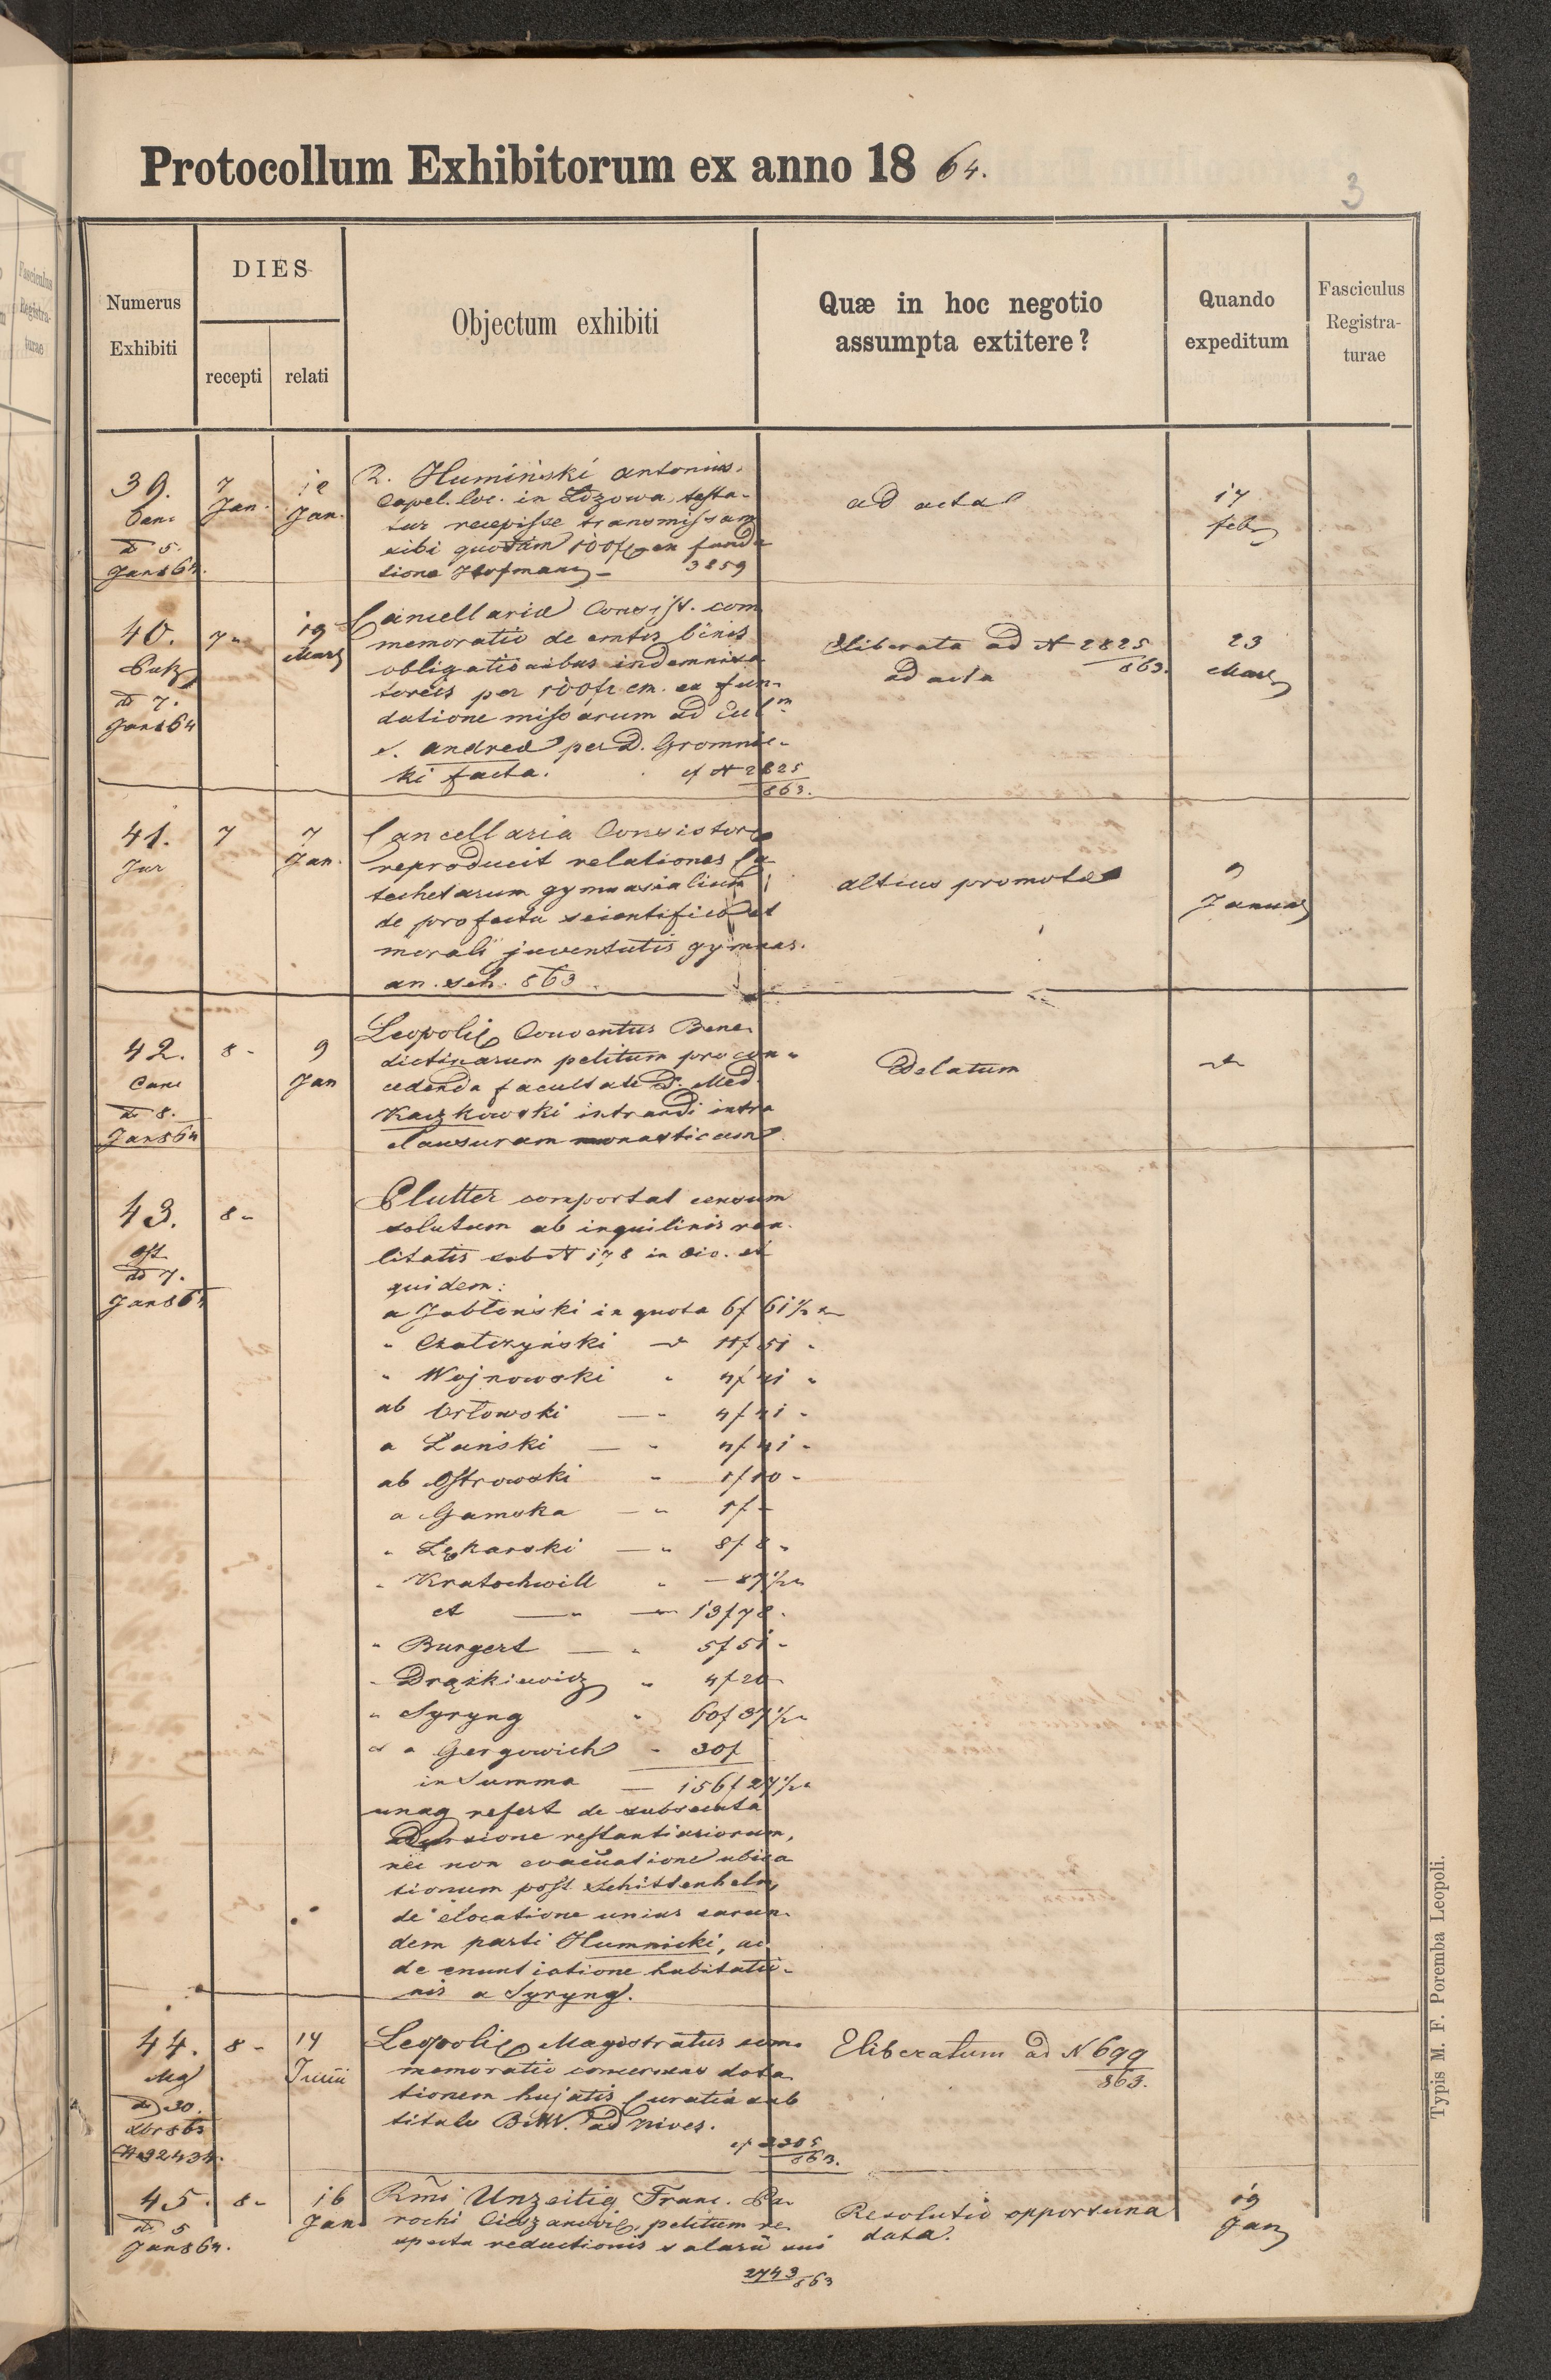 Protocollum Exhibitorum ex anno 1864.
3
Numerus Exhibiti
DIES
recepti
relati
Objectum exhibiti
Quæ in hoc negotio assumpta extitere?
Quando expeditum
Fasciculus Registra-turae
39.
d 5.
Jan 864.
7 Jan.
Jan.
R. Humiński Antonius.
Capel. loc. in testa-
tur recepisse transmissam
sibi quotam 100f ex funda
tione Hofmann 3859
ad acta
17
feb
40.
d 7.
Jan 864
7 "
19
Mart
Cancellariæ Consist. com
memoratio de emtis binis
obligationibus indemnisa
toreis per 100fr cm. ex fun-
datione missarum ad Eccl
S. Andreæ per D. Gromnic-
ki facta. cf N 2825
863.
Eliberata ad N 2825
863.
ad acta
23
Mart
41.
7
7
Jan.
Cancellaria Consistor
reproducit relationes Ca-
techetarum gymnasialium
de profectu scientifico et
morali juventutis gymnas.
an. sch. 863.
altius promota
9
Januar
42.
d 8.
Jan 864
8 -
9
Jan
Leopoli Conventus Bene-
dictinarum petitum pro con-
cedenda facultate D. Med.
Kaczkowski intrandi intra
clausuram monasticam
Delatum
43.
d 7.
Jan 864
8 -
Plutter comportat censum
solutum ab inquilinis rea-
litatis sub N 178 in Civ. et
quidem:
a Jabłoński in quota 6f 61½
" 11f 51 "
" Wojnowski " 4f 41 "
ab Orłowski — " 4f 41 "
a Łański — " 4f 41 "
ab Ostrowski " 1f 10 -
a Gamska — " 1f -
" Lękarski — " 8f 8 "
" Kratochwill " — 87½
et — " 13f 78 "
" Burgert — " 5f 51 "
" Drążkiewicz " 4f 20
" Syryng " 60f 37½
" a Gergowich " 30f
in Summa — 156f 27½
unaq refert de subsecuta
restantiariorum,
nec non evacuatione ubica
tionum post Schittenhelm,
de elocatione unius earun-
dem parti Humnicki, ac
de enuntiatione habitatio-
nis a Syryng.
44.
Mg
d 30.
Xbr 863
N 32434.
8 -
14
Junii
Leopoli Magistratus com-
memoratio concernens dota
tionem hujatis Curatia sub
titulo BMV. ad nives.
cf 2305
863.
Eliberatum ad N 699
863.
45.
d 5
Jan 864.
8 -
16
Jan
Rmi Unzeitig Franc. Pa-
rochi petitum re-
spectu reductionis salarii
2743/863
Resolutio opportuna
data.
19
Jan
Typis M. F. Poremba Leopoli.